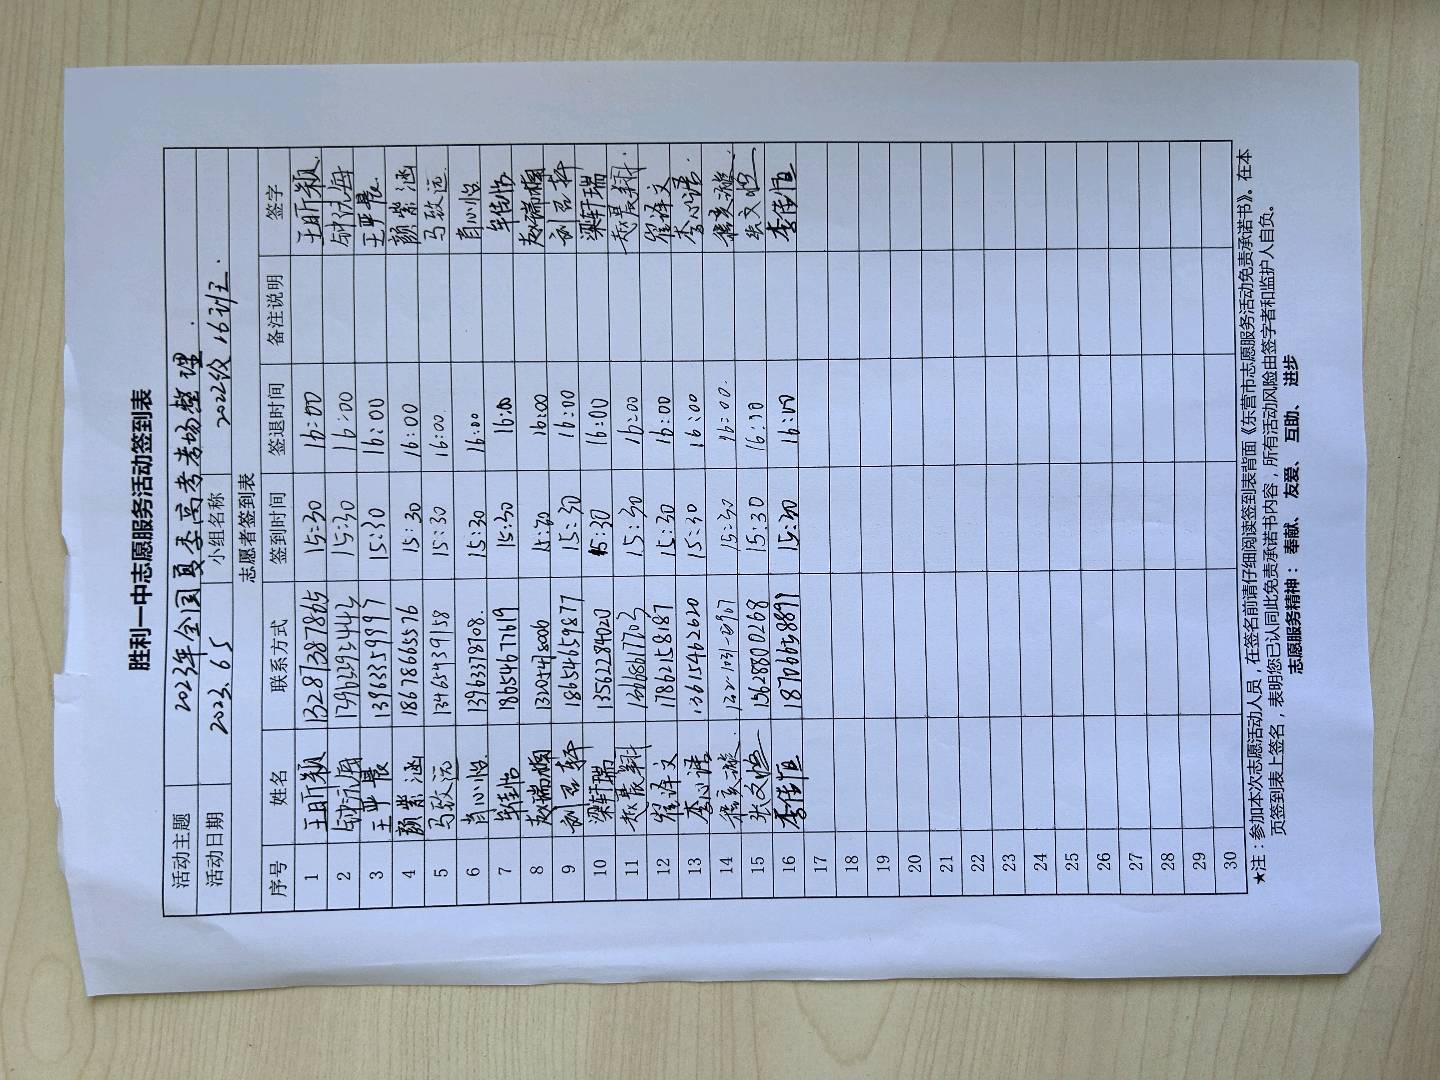 胜利一中志愿服务活动签到表
活动主题 2023年全国夏季高考考场整理.
活动日期 2023.6.5 小组名称 2022级16班.
志愿者签到表
序号 姓名 联系方式 签到时间 签退时间 备注说明 签字
1 王昕颖 13287387865 15:30 16:00 王昕颖.
2 15:30 16:00
3 王亚晨 15:30 16:00 王亚晨
4 颜紫涵 18678665576 15:30 16:00 颜紫涵
5 马致远 13465439158 15:30 16:00 马致远
6 肖心怡 13963378708. 15:30 16:00 肖心怡
7 牟佳怡 18654677619 15:30 16:00 牟佳怡
8 15:30 16:00
9 18654659877 15:30 16:00
10 梁轩瑞 13562284020 15:30 16:00 梁轩瑞
11 赵晨翔 15:30 16:00 赵晨翔.
12 翟译文 17862158187 15:30 16:00 翟译文
13 李心语 13615462620 15:30 16:00 李心语.
14 15:30 16:00.
15 张文恺 15628800268 15:30 16:10 张文恺
16 李佳恒 18706658891 15:30 16:00 李佳恒
17
18
19
20
21
22
23
24
25
26
27
28
29
30
★注：参加本次志愿活动人员，在签名前请仔细阅读签到表背面《东营市志愿服务活动免责承诺书》。在本
页签到表上签名，表明您已认同此免责承诺书内容，所有活动风险由签字者和监护人自负。
志愿服务精神：奉献、友爱、互助、进步